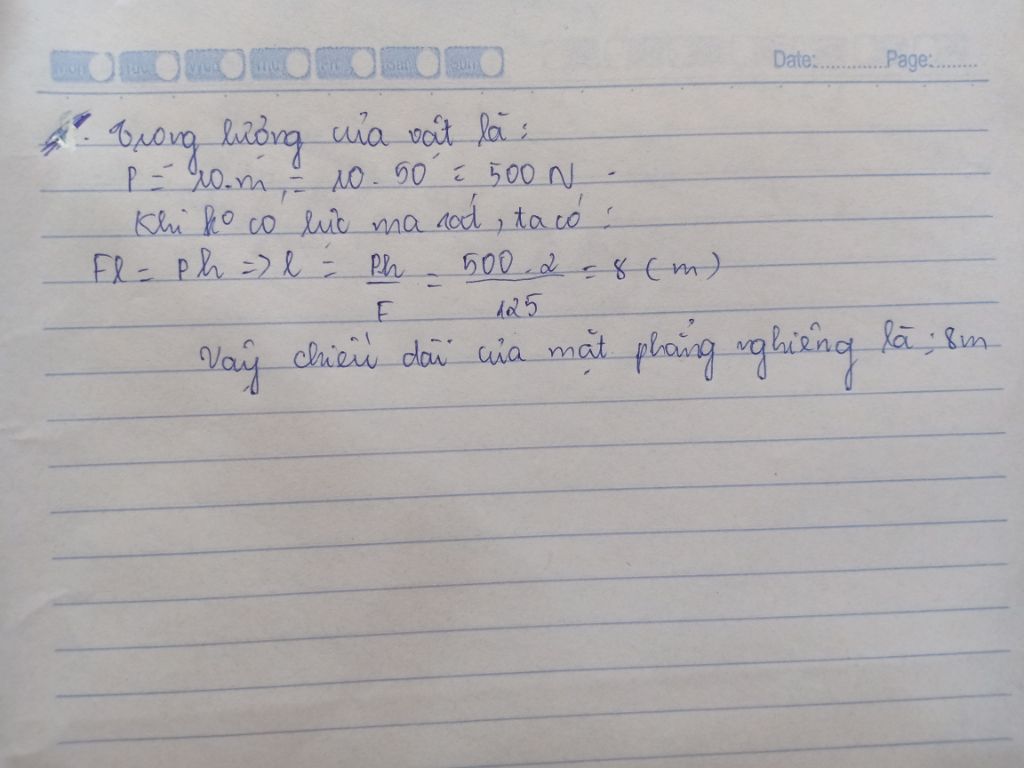 Mon Tue Wed Thu Fri Sat Sun Date:............Page:........
. Trọng lượng của vật là:
P = 10.m = 10.50 = 500 N.
Khi ko có lực ma sát, ta có:
Fl = Ph => l = Ph/F = 500.2/125 = 8 (m)
Vậy chiều dài của mặt phẳng nghiêng là: 8m